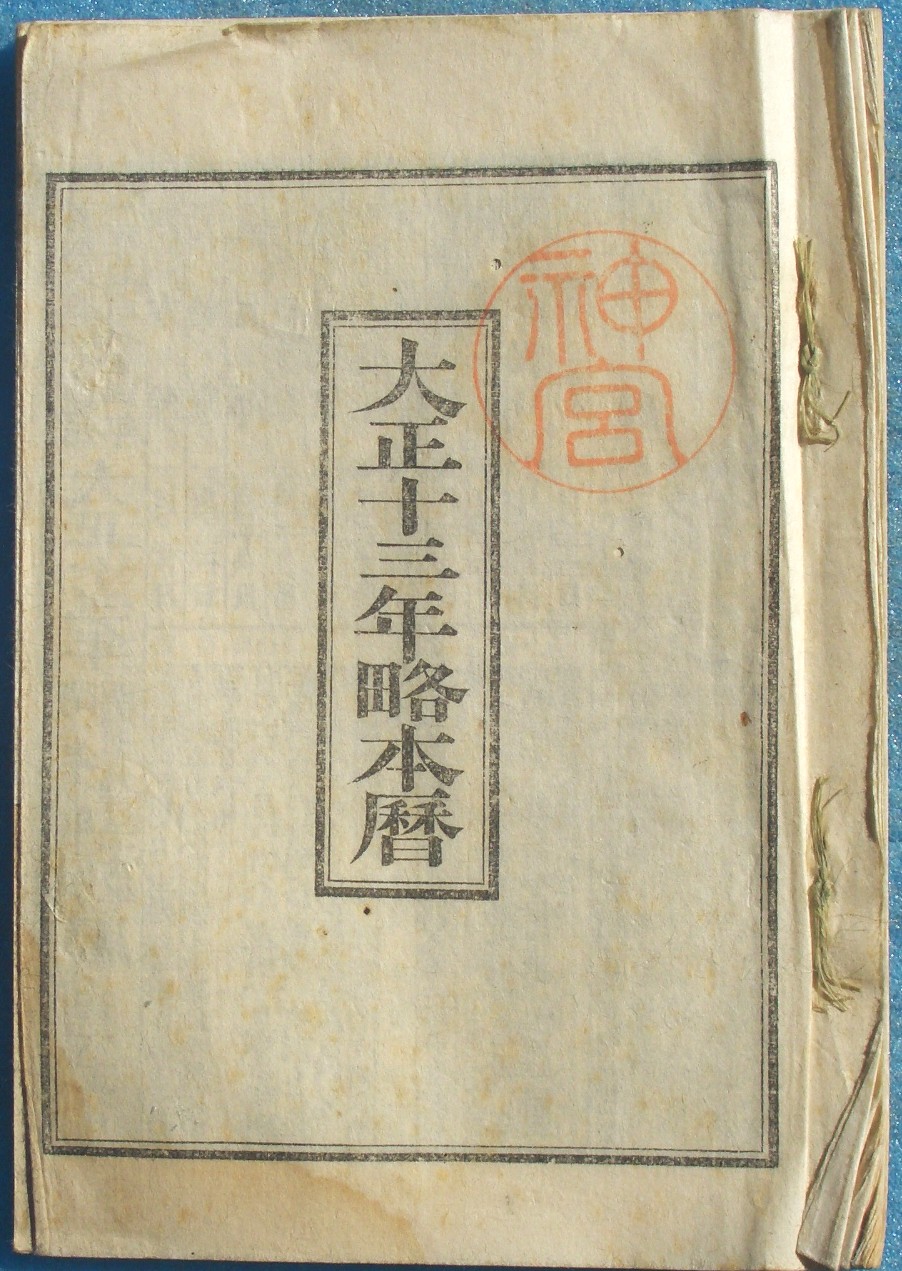 神宮
大正十三年略本暦